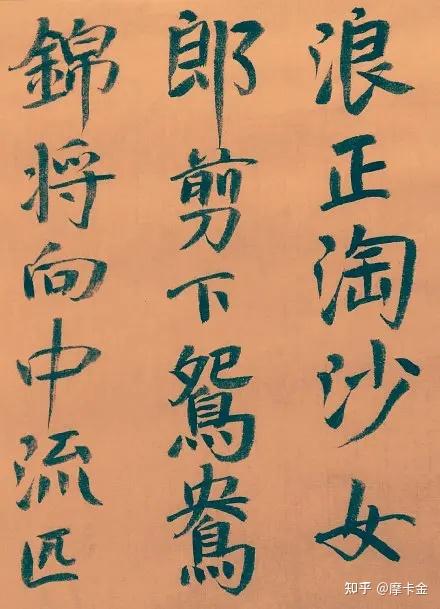 浪正淘沙女
郎剪下鴛鴦
錦将向中流匹
知乎 @摩卡金